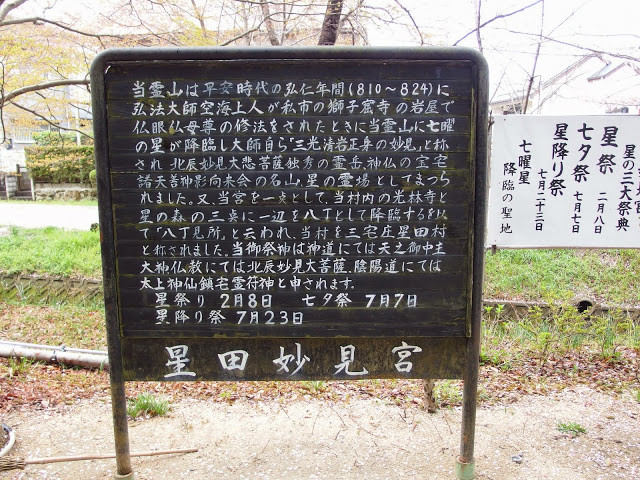 当霊山は平安時代の弘仁年間(810～824)に
弘法大師空海上人が私市の獅子窟寺の岩屋で
仏眼仏母尊の修法をされたときに当霊山に七曜
の星が降臨し大師自ら"三光清岩正身の妙見"と称
され北辰妙見大悲菩薩独秀の霊岳、神仏の宝宅
諸天善神影向来会の名山、星の霊場としてまつら
れました。又、当宮を一点として、当村内の光林寺と
星の森の三点に一辺を八丁として降臨するを以
て「八丁見所」と云われ、当村を三宅庄星田村
と称されました。当御祭神は神道にては天之御中主
大神仏教にては北辰妙見大菩薩、陰陽道にては
太上神仙鎮宅霊符神と申されます。
星祭り 2月8日 七夕祭 7月7日
星降り祭 7月23日
星田妙見宮
星の三大祭典
星祭 二月八日
七夕祭 七月七日
星降り祭 七月二十三日
七曜星
降臨の聖地